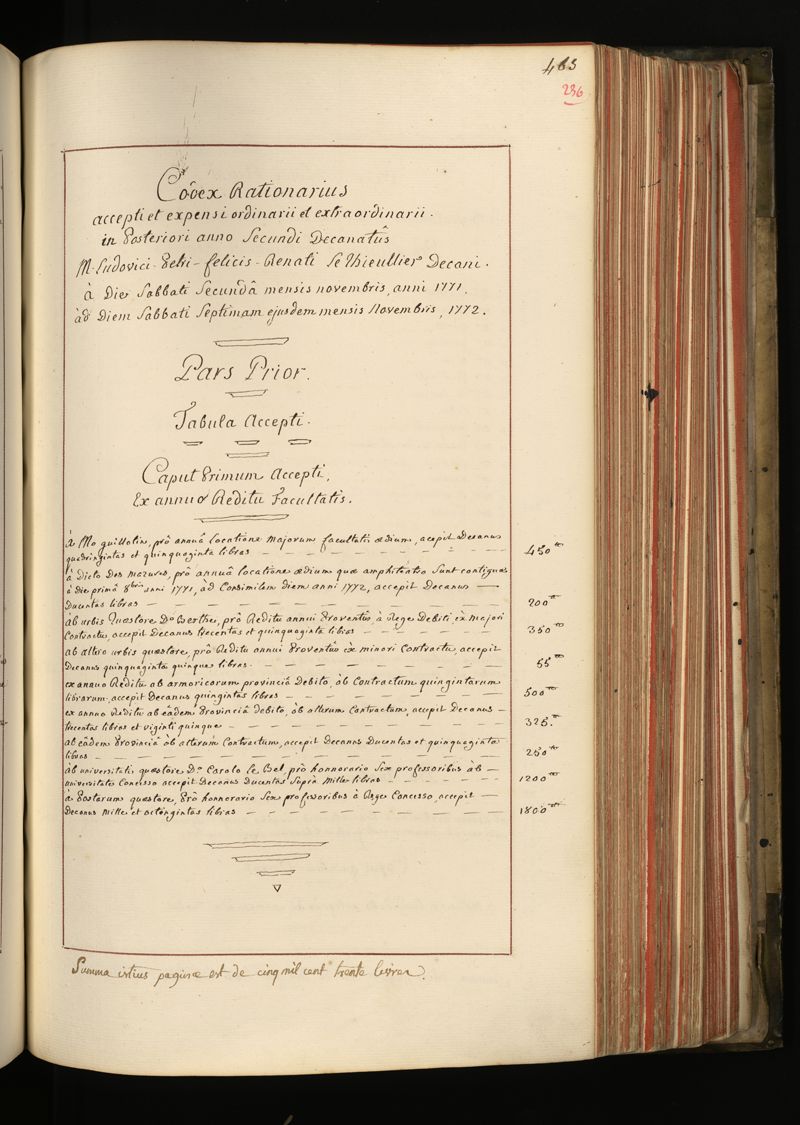 463
236
Codex Rationarius
accepti et expensi ordinarii et extraordinarii.
in Posteriori anno Secundi Decanatûs
M. Ludovici-Petri-felicis-Renati Le Thieullier Decani.
à Die Sabbati Secundâ mensis novembris, anni 1771.
ad Diem Sabbati Septimam ejusdem mensis Novembris, 1772.
Pars Prior.
Tabula Accepti.
Caput Primum Accepti.
Ex annuo Reditu Facultatis.
à Mo guillotin, prô annuâ locatione majorum facultatis ædium, acepit Decanus
quadringintas et quinquaginta libras 450 tt
à Dicto Des mazures, prô annuâ locatione ædium quæ amphiteatro sunt contiguæ
à die primâ 8bris anni 1771, ad Consimilem diem anni 1772, accepit Decanus
Ducentas libras 200 tt
ab urbis Quæstore Do Berthe, prô Reditu annui Proventûs à Rege Debiti ex majori
Contractu, accepit Decanus trecentas et quinquaginta libras 350 tt
ab altero urbis quæstore, prô Reditu annui Proventûs ex minori Contractu, accepit
Decanus quinquaginta quinque libras. 55 tt
ex annuo Reditu ab armoricorum provinciâ Debito, ob Contractum quingintarum
librarum, accepit Decanus quingintas libras 500 tt
ex annuo Reditu ab eâdem Provinciâ debito, ob alterum Contractum, accepit Decanus
trecentas libras et viginti quinque 325. tt
ab eâdem Provinciâ ob alterum Contractum, accepit Decanus Ducentas et quinquaginta
libras 250 tt
ab universitatis quæstore Do Carolo le Bel, prô honnorario Sex professoribus ab
universitate Concesso accepit Decanus Ducentas Suprà Mille libras 1200 tt
à Postarum quæstore, Prô honnorario Sex professoribus à Rege Concesso, accepit
Decanus mille et octongintas libras 1800 tt
Summa istius paginæ est de cinq mil cent trente livres.